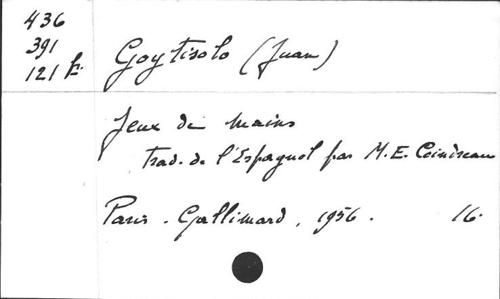 436
391
121 E
Goytisolo (Juan)
Jeux de mains
Trad. de l'Espagnol par M.E. Coindreau
Paris. Gallimard, 1956. 16.